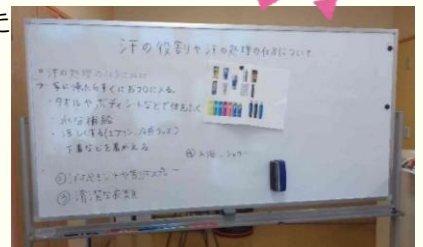 た
汗の役割や汗の処理の仕方について
汗の処理の仕方について
家に帰ったらすぐにお風呂に入る。
・タオルやボディシートなどで体をふく
・水分補給
・涼しくする(エアコン、
下着などを着がえる
④入浴、シャワー
①汗ふきシートや制汗スプレー
③清潔な衣類